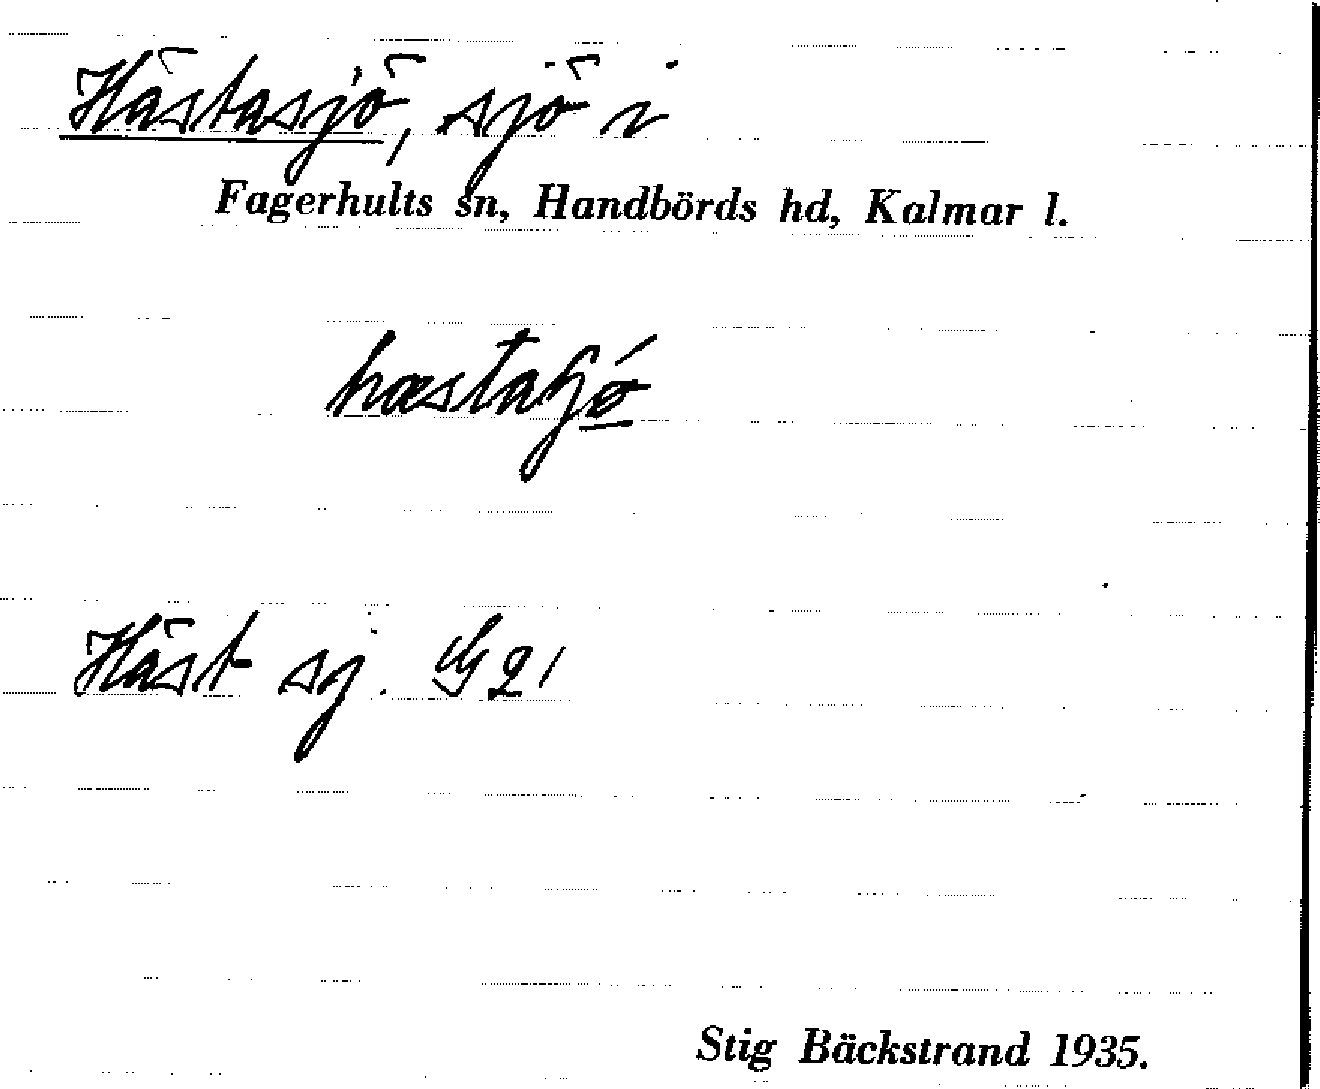 Hästasjö, sjö i
Fagerhults sn, Handbörds hd, Kalmar l.
Häst sj. G 21
Stig Bäckstrand 1935.